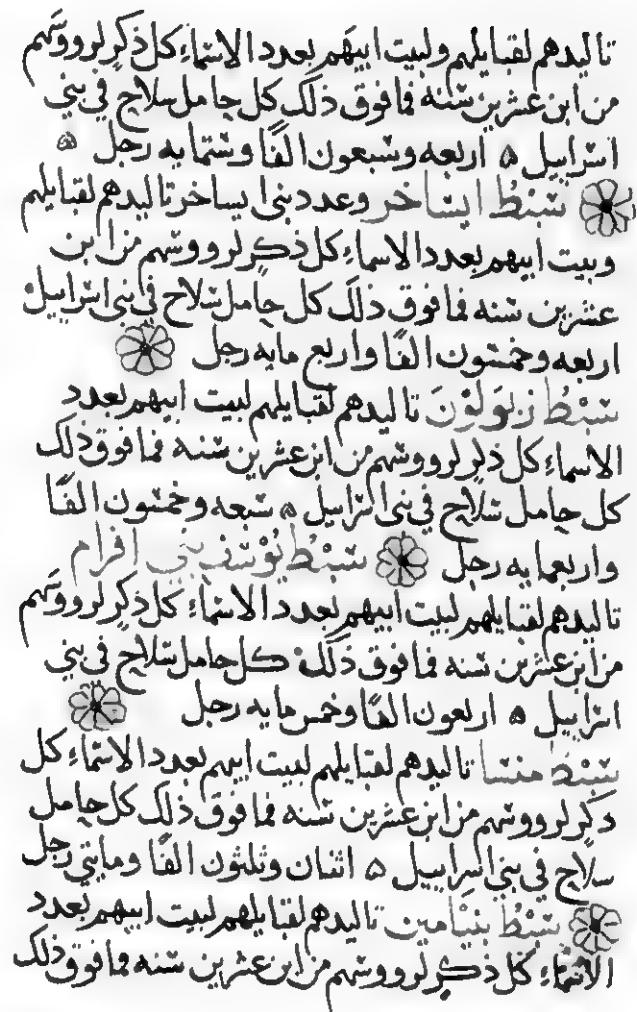 تاليدهم لقبايلهم ولبيت ابيهم بعدد الاسماء كل ذكر لرووسهم
من ابن عشرين سنه فما فوق ذلك كل حامل سلاح في بني
اسراييل ه اربعه وسبعون الفًا وستمايه رجل ه
سبطُ ايساخر وعدد بني ايساخر تاليدهم لقبايلهم
وبيت ابيهم بعدد الاسماءِ كل ذكر لرووسهم من ابن
عشرين سنه فما فوق ذلك كل حامل سلاح في بني اسراييل
اربعه وخمسون الفًا واربع مايه رجل
سبطُ زبولونَ تاليدهم لقبايلهم لبيت ابيهم بعدد
الاسماءِ كل ذكر لرووسهم من ابن عشرين سنه فما فوق ذلك
كل حامل سلاح في بني اسراييل ه سبعه وخمسون الفًا
واربعمايه رجل سبطُ يوسف بني افرام
تاليدهم لقبايلهم لبيت ابيهم بعدد الاسماءِ كل ذكر لرووسهم
من ابن عشرين سنه فما فوق ذلك كل حامل سلاح في بني
اسراييل ه اربعون الفًا وخمس مايه رجل
سبطُ منسا تاليدهم لقبايلهم لبيت ابيهم بعدد الاسماءِ كل
ذكر لرووسهم من ابن عشرين سنه فما فوق ذلك كل حامل
سلاح في بني اسراييل ه اثنان وثلثون الفًا ومايتي رجل
سبطُ بنيامين تاليدهم لقبايلهم لبيت ابيهم بعدد
الاسماءِ كل ذكر لرووسهم من ابن عشرين سنه فما فوق ذلك